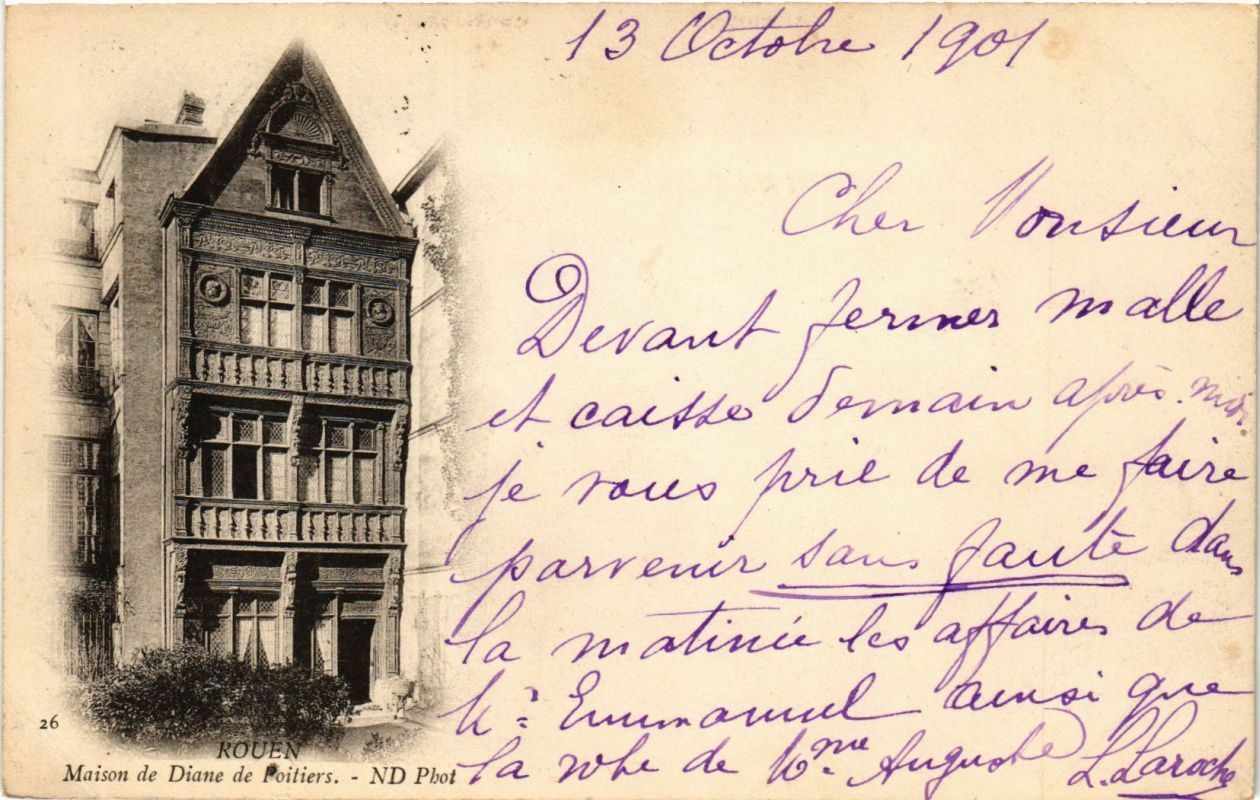 13 Octobre 1901
Cher Monsieur
Devant fermer malle
et caisse demain après-midi
je vous prie de me faire
parvenir sans faute dans
la matinée les affaires de
Mr Emmanuel ainsi que
la robe de Mme Auguste
L. Laroche
26
ROUEN
Maison de Diane de Poitiers. - ND Phot